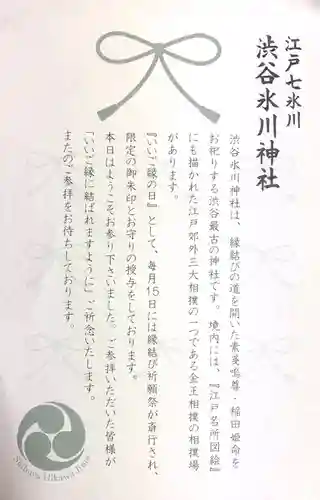 江戸七氷川
渋谷氷川神社
渋谷氷川神社は、縁結びの道を開いた素戔嗚尊・稲田姫命を
お祀りする渋谷最古の神社です。境内には、『江戸名所図絵』
にも描かれた江戸郊外三大相撲の一つである金王相撲の相撲場
があります。
『いいご縁の日』として、毎月15日には縁結び祈願祭が斎行され、
限定の御朱印とお守りの授与をしております。
本日はようこそお参り下さいました。ご参拝いただいた皆様が
「いいご縁に結ばれますように」ご祈念いたします。
またのご参拝をお待ちしております。
Shibuya Hikawa Jinja